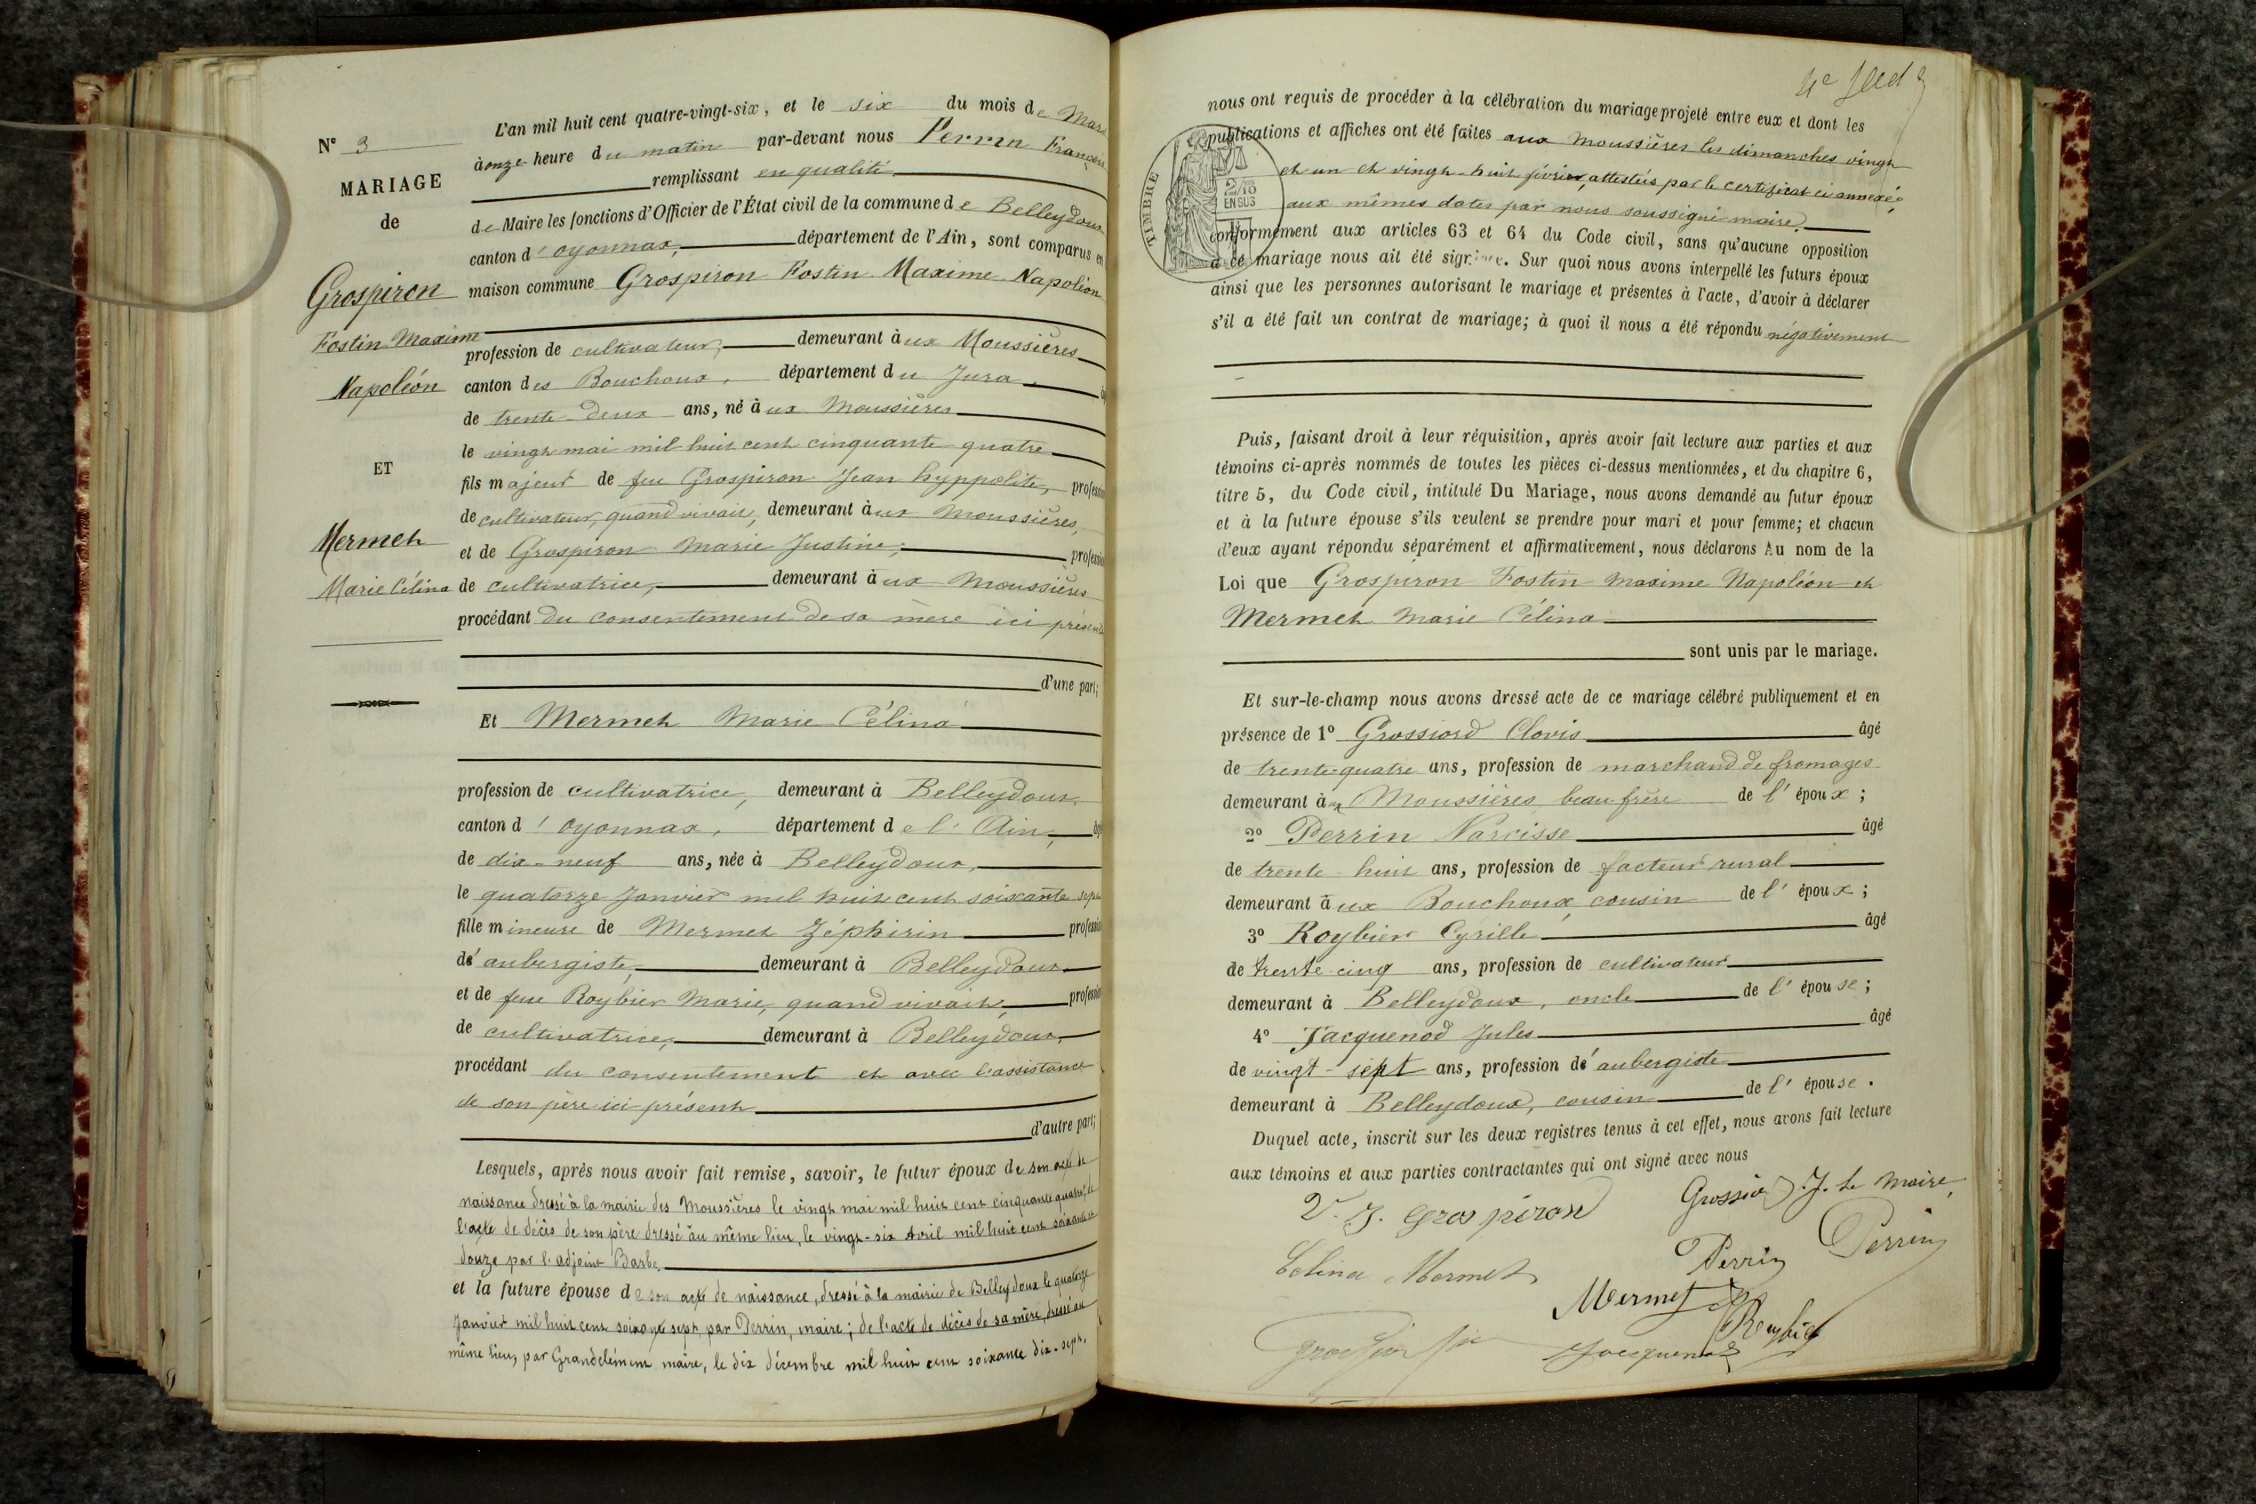 N° 3
MARIAGE
de
Grospiron
Fostin Maxime
Napoléon
ET
Mermet
Marie Célina
L'an mil huit cent quatre-vingt-six, et le six du mois de Mars
à onze heure du matin par-devant nous Perrin François
remplissant en qualité
de Maire les fonctions d'Officier de l'État civil de la commune de Belleydoux
canton d'oyonnax, département de l'Ain, sont comparus en
maison commune Grospiron Fostin Maxime Napoléon
profession de cultivateur, demeurant aux Moussières
canton des Bouchoux, département du Jura,
de trente-deux ans, né aux Moussières
le vingt mai mil huit cent cinquante quatre
fils majeur de feu Grospiron Jean hyppolite, profession
de cultivateur, quand vivait, demeurant aux moussières,
et de Grospiron Marie Justine, profession
de cultivatrice, demeurant aux moussières
procédant du consentement de sa mère ici présente
d'une part;
Et Mermet Marie Célina
profession de cultivatrice, demeurant à Belleydoux,
canton d'oyonnax, département de l'Ain, âgé
de dix-neuf ans, née à Belleydoux,
le quatorze Janvier mil huit cent soixante sept
fille mineure de Mermet Zéphirin profession
d'aubergiste, demeurant à Belleydoux
et de feue Roybier Marie, quand vivait, profession
de cultivatrice, demeurant à Belleydoux,
procédant du consentement et avec l'assistance
de son père ici présent
d'autre part;
Lesquels, après nous avoir fait remise, savoir, le futur époux de son acte de
naissance dressé à la mairie des Moussières le vingt mai mil huit cent cinquante quatre, de
l'acte de décès de son père dressé au même lieu, le vingt-six Avril mil huit cent soixante et
douze par l'adjoint Barbe,
et la future épouse de son acte de naissance, dressé à la mairie de Belleydoux le quatorze
Janvier mil huit cent soixante sept, par Perrin, maire; de l'acte de décès de sa mère, dressé au
même lieu, par Grandclément maire, le dix décembre mil huit cent soixante dix-sept.
nous ont requis de procéder à la célébration du mariage projeté entre eux et dont les
publications et affiches ont été faites aux Moussières les dimanches vingt
et un et vingt-huit février, attestées par le certificat ci annexé;
aux mêmes dates par nous soussigné maire,
conformément aux articles 63 et 64 du Code civil, sans qu'aucune opposition
à ce mariage nous ait été signifiée. Sur quoi nous avons interpellé les futurs époux
ainsi que les personnes autorisant le mariage et présentes à l'acte, d'avoir à déclarer
s'il a été fait un contrat de mariage; à quoi il nous a été répondu négativement
TIMBRE
2/10
EN SUS
Puis, faisant droit à leur réquisition, après avoir fait lecture aux parties et aux
témoins ci-après nommés de toutes les pièces ci-dessus mentionnées, et du chapitre 6,
titre 5, du Code civil, intitulé Du Mariage, nous avons demandé au futur époux
et à la future épouse s'ils veulent se prendre pour mari et pour femme; et chacun
d'eux ayant répondu séparément et affirmativement, nous déclarons Au nom de la
Loi que Grospiron Fostin maxime Napoléon et
Mermet Marie Célina
sont unis par le mariage.
Et sur-le-champ nous avons dressé acte de ce mariage célébré publiquement et en
présence de 1° Grossiord Clovis âgé
de trente-quatre ans, profession de marchand de fromages
demeurant aux Moussières beau-frère de l'époux;
2° Perrin Narcisse âgé
de trente-huit ans, profession de facteur rural
demeurant aux Bouchoux, cousin de l'époux;
3° Roybier Cyrille âgé
de trente-cinq ans, profession de cultivateur
demeurant à Belleydoux, oncle de l'épouse;
4° Jacquenod Jules âgé
de vingt-sept ans, profession d'aubergiste
demeurant à Belleydoux, cousin de l'épouse.
Duquel acte, inscrit sur les deux registres tenus à cet effet, nous avons fait lecture
aux témoins et aux parties contractantes qui ont signé avec nous
V. J. Grospiron
J. Le Maire,
Célina Mermet
Perrin
Perrin
Mermet
Roybier
Jacquenod